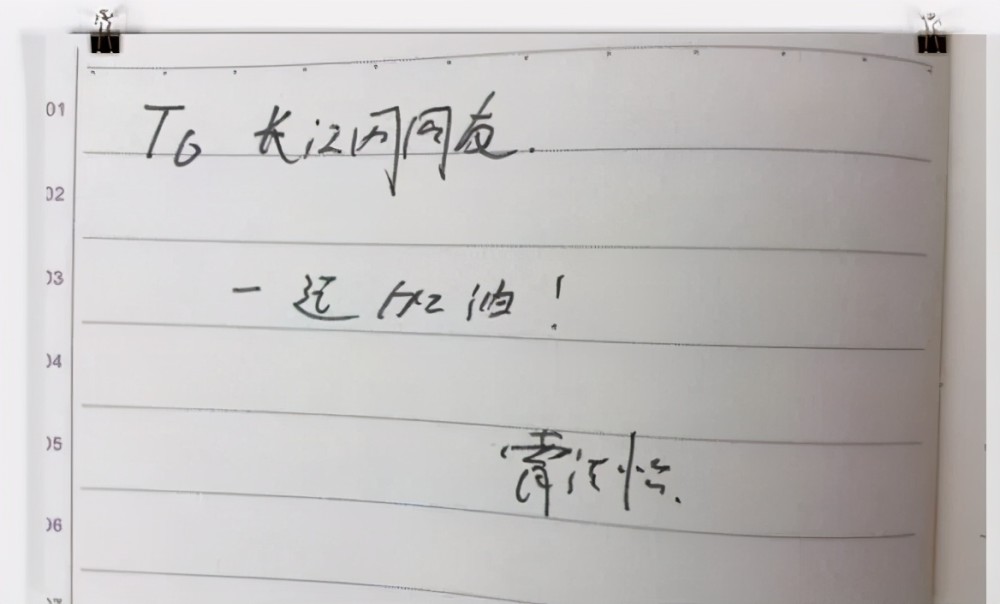 01
To 长江网网友.
02
03
一起加油!
04
05
06